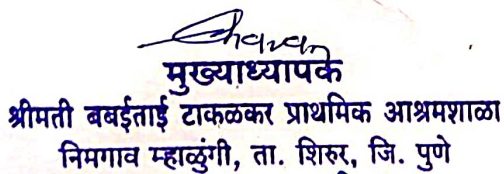 Chavan
मुख्याध्यापक
श्रीमती बबईताई टाकळकर प्राथमिक आश्रमशाळा
निमगाव म्हाळुंगी, ता. शिरुर, जि. पुणे